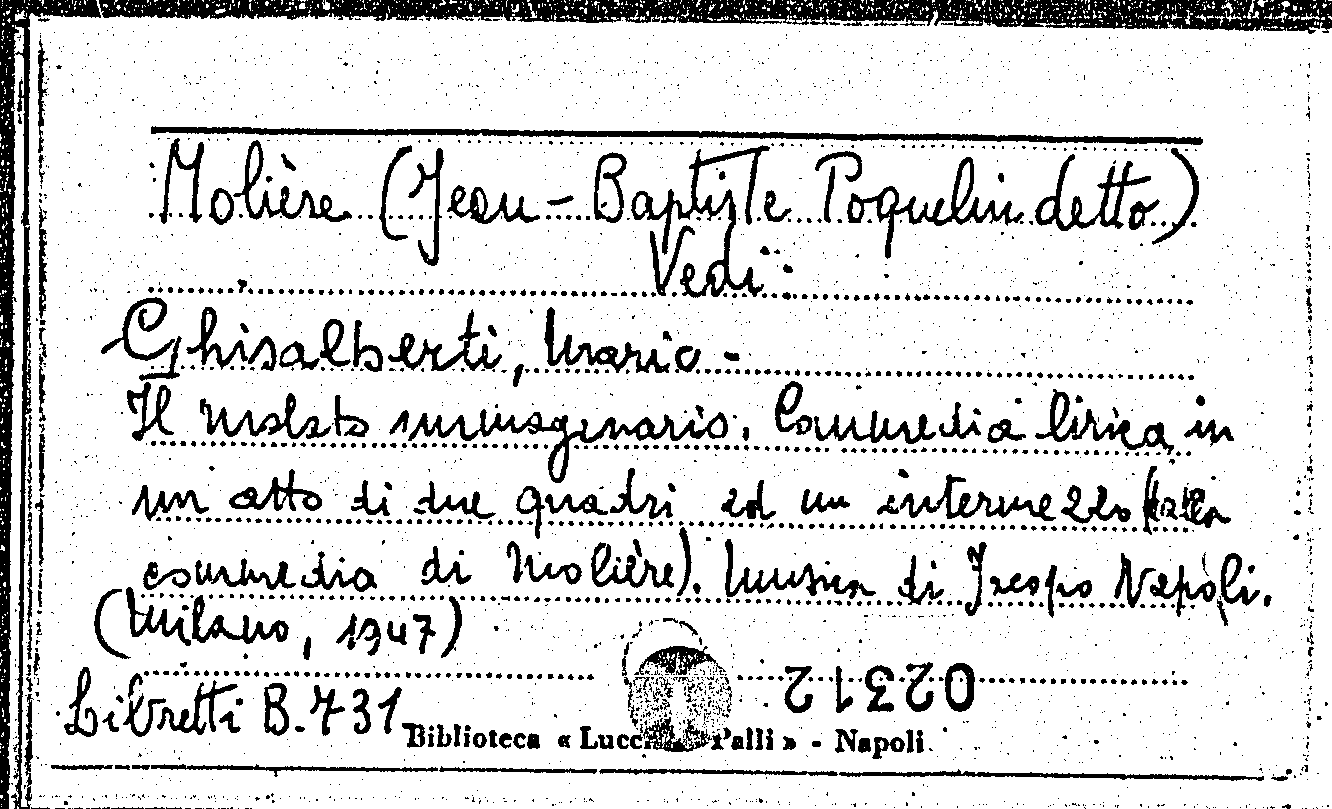 Molière (Jean-Baptiste Poquelin detto)
Vedi:
Ghisalberti, Mario -
Il malato immagenario. Commedia lirica in
un atto di due quadri ed un intermezzo (dalla
commedia di Molière). Musica di Jacopo Napòli.
(Milano, 1947)
02312
Libretti B. 731
Biblioteca « Lucc Palli » - Napoli